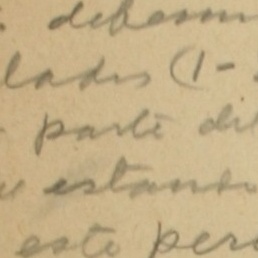 debemos
lados (1-
parte di
estando
este per